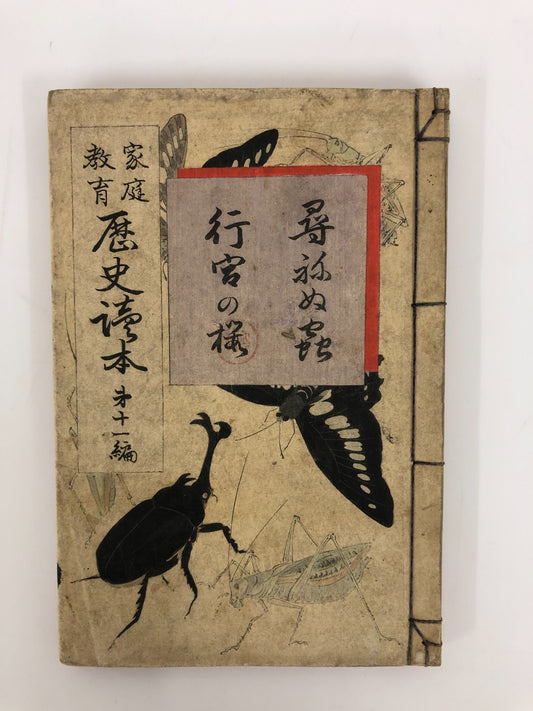 尋ねぬ蟲
行宮の桜
家庭
教育
歴史讀本
第十一編